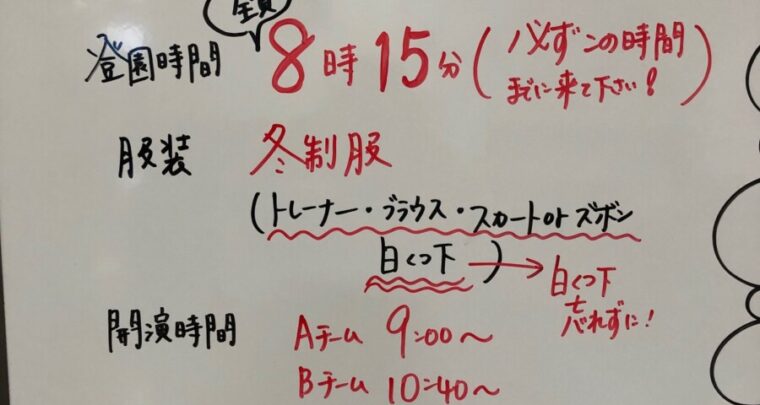 全員
登園時間 8時15分(必ずこの時間
までに来て下さい!)
服装 冬制服
(トレーナー・ブラウス・スカートorズボン
白くつ下)→白くつ下
忘れずに!
開演時間 Aチーム 9:00〜
Bチーム 10:40〜